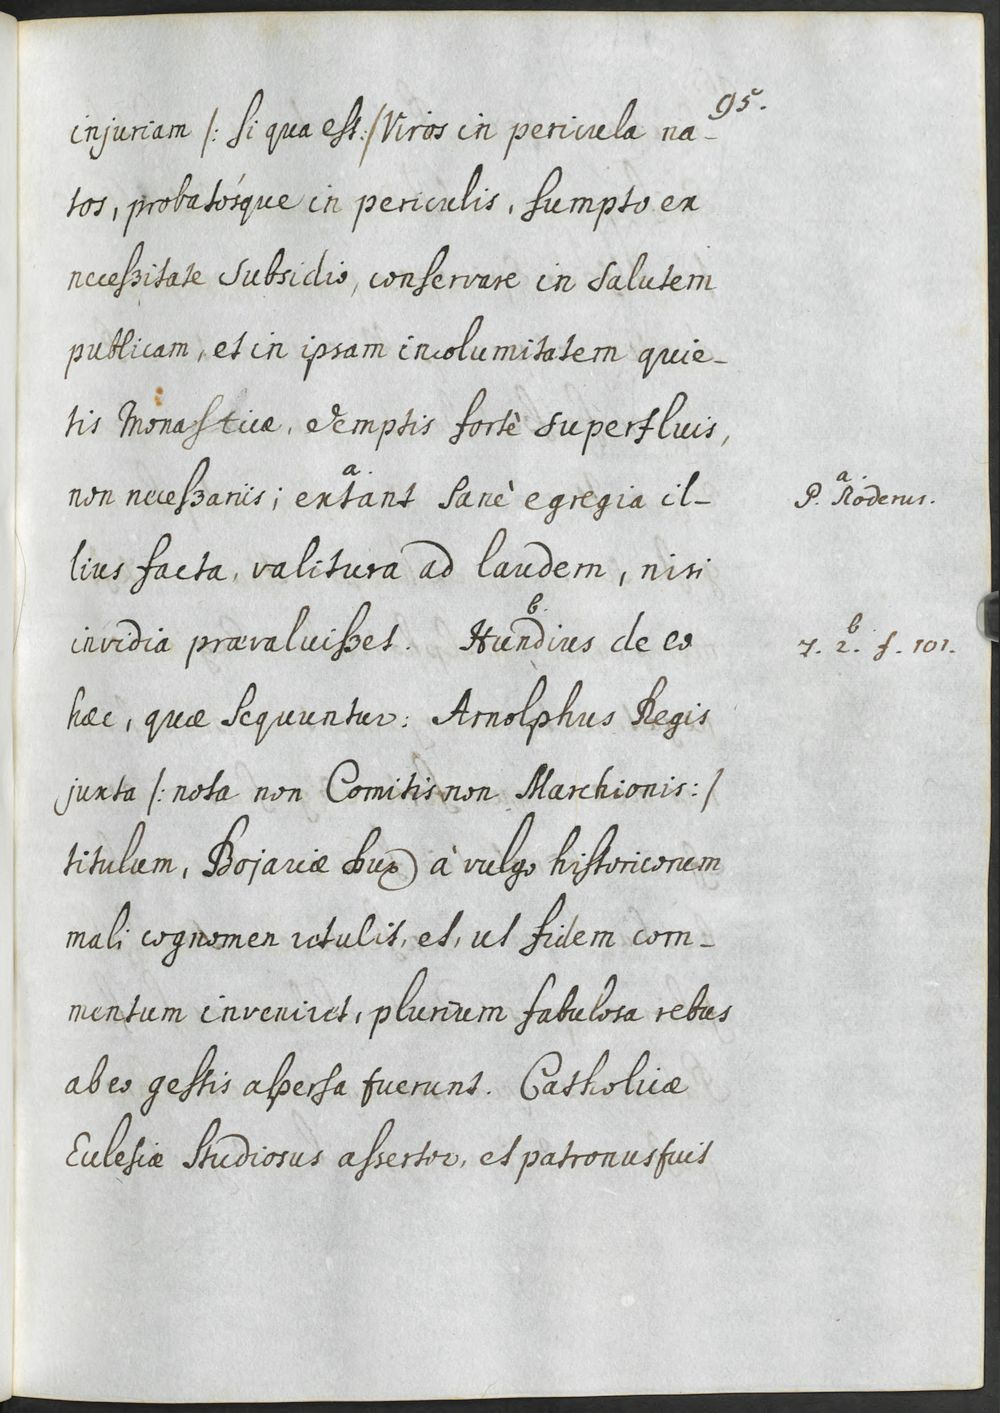 95.
injuriam /: si qua est :/ Viros in pericula na-
tos, probatósque in periculis, sumpto ex
necessitate subsidio, conservare in salutem
publicam, et in ipsam incolumitatem quie-
tis Monasticæ, demptis fortè superfluis,
a.
non necessariis; extant sanè egregia il-
a.
P. Räderus.
lius facta, valitura ad laudem, nisi
b.
invidia prævaluisset. Hundius de eo
b
T. 2. f. 101.
hæc, quæ sequuntur: Arnolphus Regis
juxta /: nota non Comitis non Marchionis :/
titulum, Bojariæ Dux à vulgo historicorum
mali cognomen retulit, et, ut fidem com-
mentum inveniret, plurium fabulosa rebus
ab eo gestis aspersa fuerunt. Catholicæ
Eclesiæ studiosus assertor, et patronus fuit